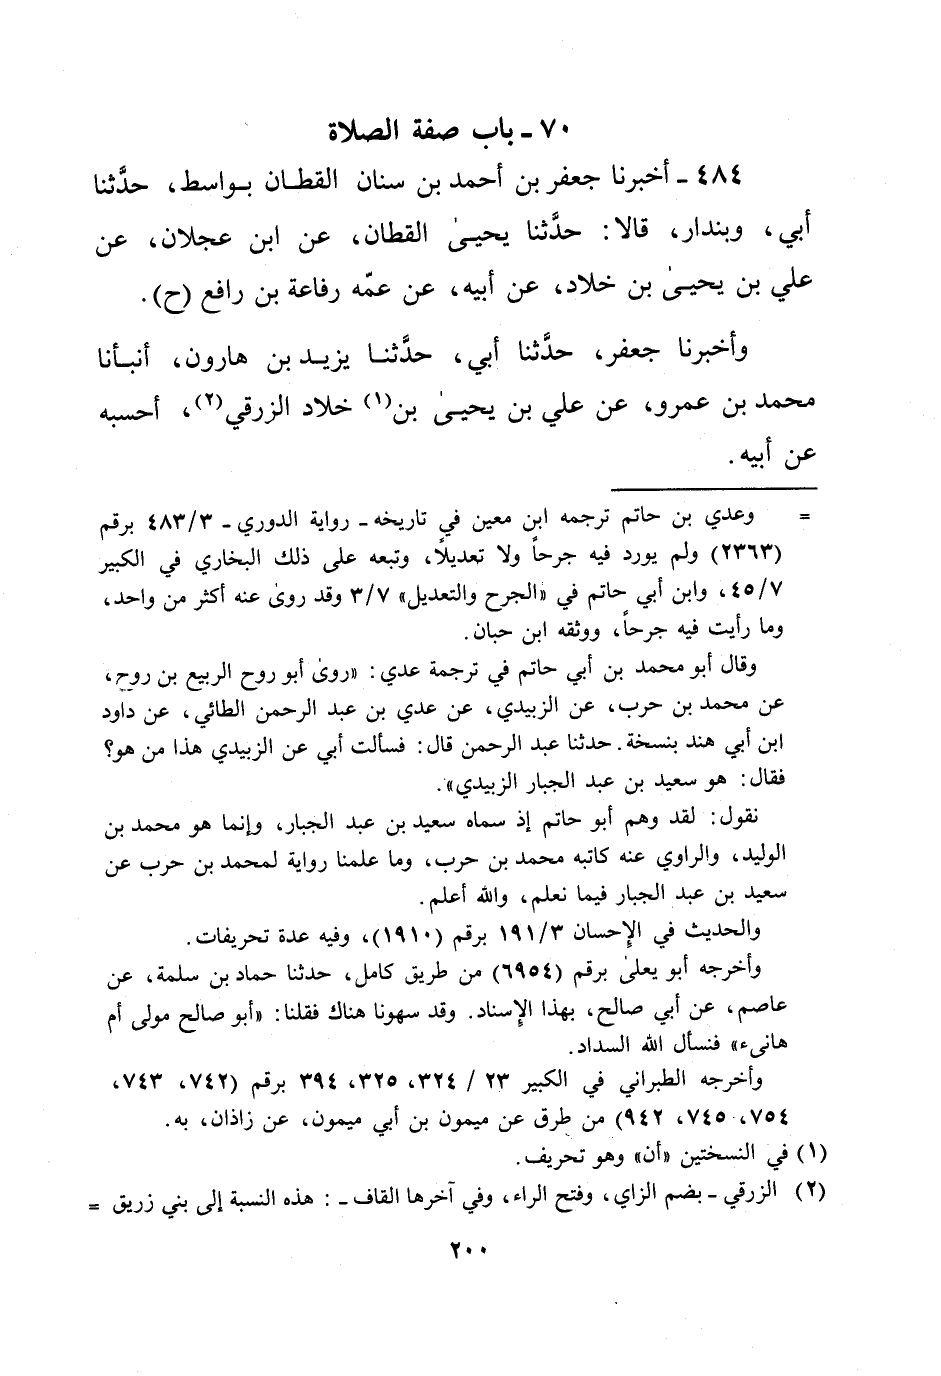 ٧٠ ـ باب صفة الصلاة
٤٨٤ ـ أخبرنا جعفر بن أحمد بن سنان القطان بواسط، حدَّثنا
أبي، وبندار، قالا: حدَّثنا يحيىٰ القطان، عن ابن عجلان، عن
علي بن يحيىٰ بن خلاد، عن أبيه، عن عمّه رفاعة بن رافع (ح).
وأخبرنا جعفر، حدَّثنا أبي، حدَّثنا يزيد بن هارون، أنبأنا
محمد بن عمرو، عن علي بن يحيىٰ بن(١) خلاد الزرقي(٢)، أحسبه
عن أبيه.
= وعدي بن حاتم ترجمه ابن معين في تاريخه ـ رواية الدوري ـ ٤٨٣/٣ برقم
(٢٣٦٣) ولم يورد فيه جرحاً ولا تعديلاً، وتبعه على ذلك البخاري في الكبير
٤٥/٧، وابن أبي حاتم في «الجرح والتعديل» ٣/٧ وقد روىٰ عنه أكثر من واحد،
وما رأيت فيه جرحاً، ووثقه ابن حبان.
وقال أبو محمد بن أبي حاتم في ترجمة عدي: «روىٰ أبو روح الربيع بن روح،
عن محمد بن حرب، عن الزبيدي، عن عدي بن عبد الرحمن الطائي، عن داود
ابن أبي هند بنسخة. حدثنا عبد الرحمن قال: فسألت أبي عن الزبيدي هذا من هو؟
فقال: هو سعيد بن عبد الجبار الزبيدي».
نقول: لقد وهم أبو حاتم إذ سماه سعيد بن عبد الجبار، وإنما هو محمد بن
الوليد، والراوي عنه كاتبه محمد بن حرب، وما علمنا رواية لمحمد بن حرب عن
سعيد بن عبد الجبار فيما نعلم، والله أعلم.
والحديث في الإحسان ١٩١/٣ برقم (١٩١٠)، وفيه عدة تحريفات.
وأخرجه أبو يعلىٰ برقم (٦٩٥٤) من طريق كامل، حدثنا حماد بن سلمة، عن
عاصم، عن أبي صالح، بهذا الإسناد. وقد سهونا هناك فقلنا: «أبو صالح مولى أم
هانىء» فنسأل الله السداد.
وأخرجه الطبراني في الكبير ٢٣ / ٣٢٤، ٣٢٥، ٣٩٤ برقم (٧٤٢، ٧٤٣،
٧٥٤، ٧٤٥، ٩٤٢) من طرق عن ميمون بن أبي ميمون، عن زاذان، به.
(١) في النسختين «أن» وهو تحريف.
(٢) الزرقي ـ بضم الزاي، وفتح الراء، وفي آخرها القاف ـ : هذه النسبة إلى بني زريق =
٢٠٠